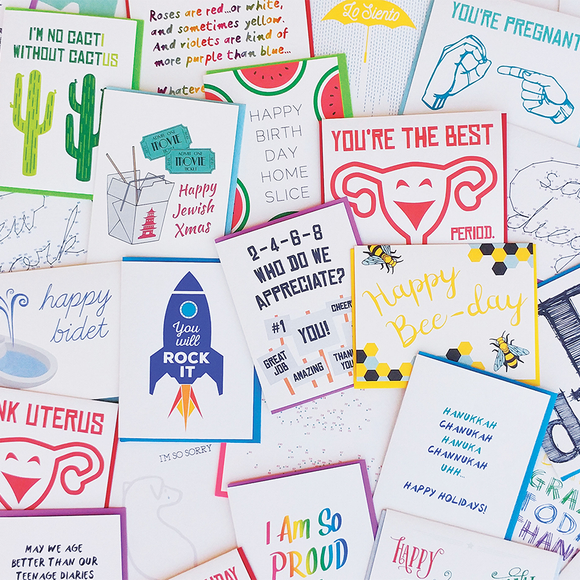 Roses are red...or white,
and sometimes yellow.
And violets are kind of
more purple than blue...
Whatever
Lo Siento
YOU'RE PREGNANT
I'M NO CACTI
WITHOUT CACTUS
HAPPY
BIRTH
DAY
HOME
SLICE
ADMIT ONE
MOVIE
TICKET
ADMIT ONE
MOVIE
TICKET
Happy
Jewish
Xmas
YOU'RE THE BEST
PERIOD.
2-4-6-8
WHO DO WE
APPRECIATE?
CHEER
#1
YOU!
GREAT
JOB
AMAZING
THANK
YOU
Happy
Bee-day
happy
bidet
You
will
ROCK
IT
HANUKKAH
CHANUKAH
HANUKA
CHANNUKAH
UHH...
HAPPY HOLIDAYS!
NK UTERUS
I'M SO SORRY
I Am So
PROUD
MAY WE AGE
BETTER THAN OUR
TEENAGE DIARIES
HAPPY